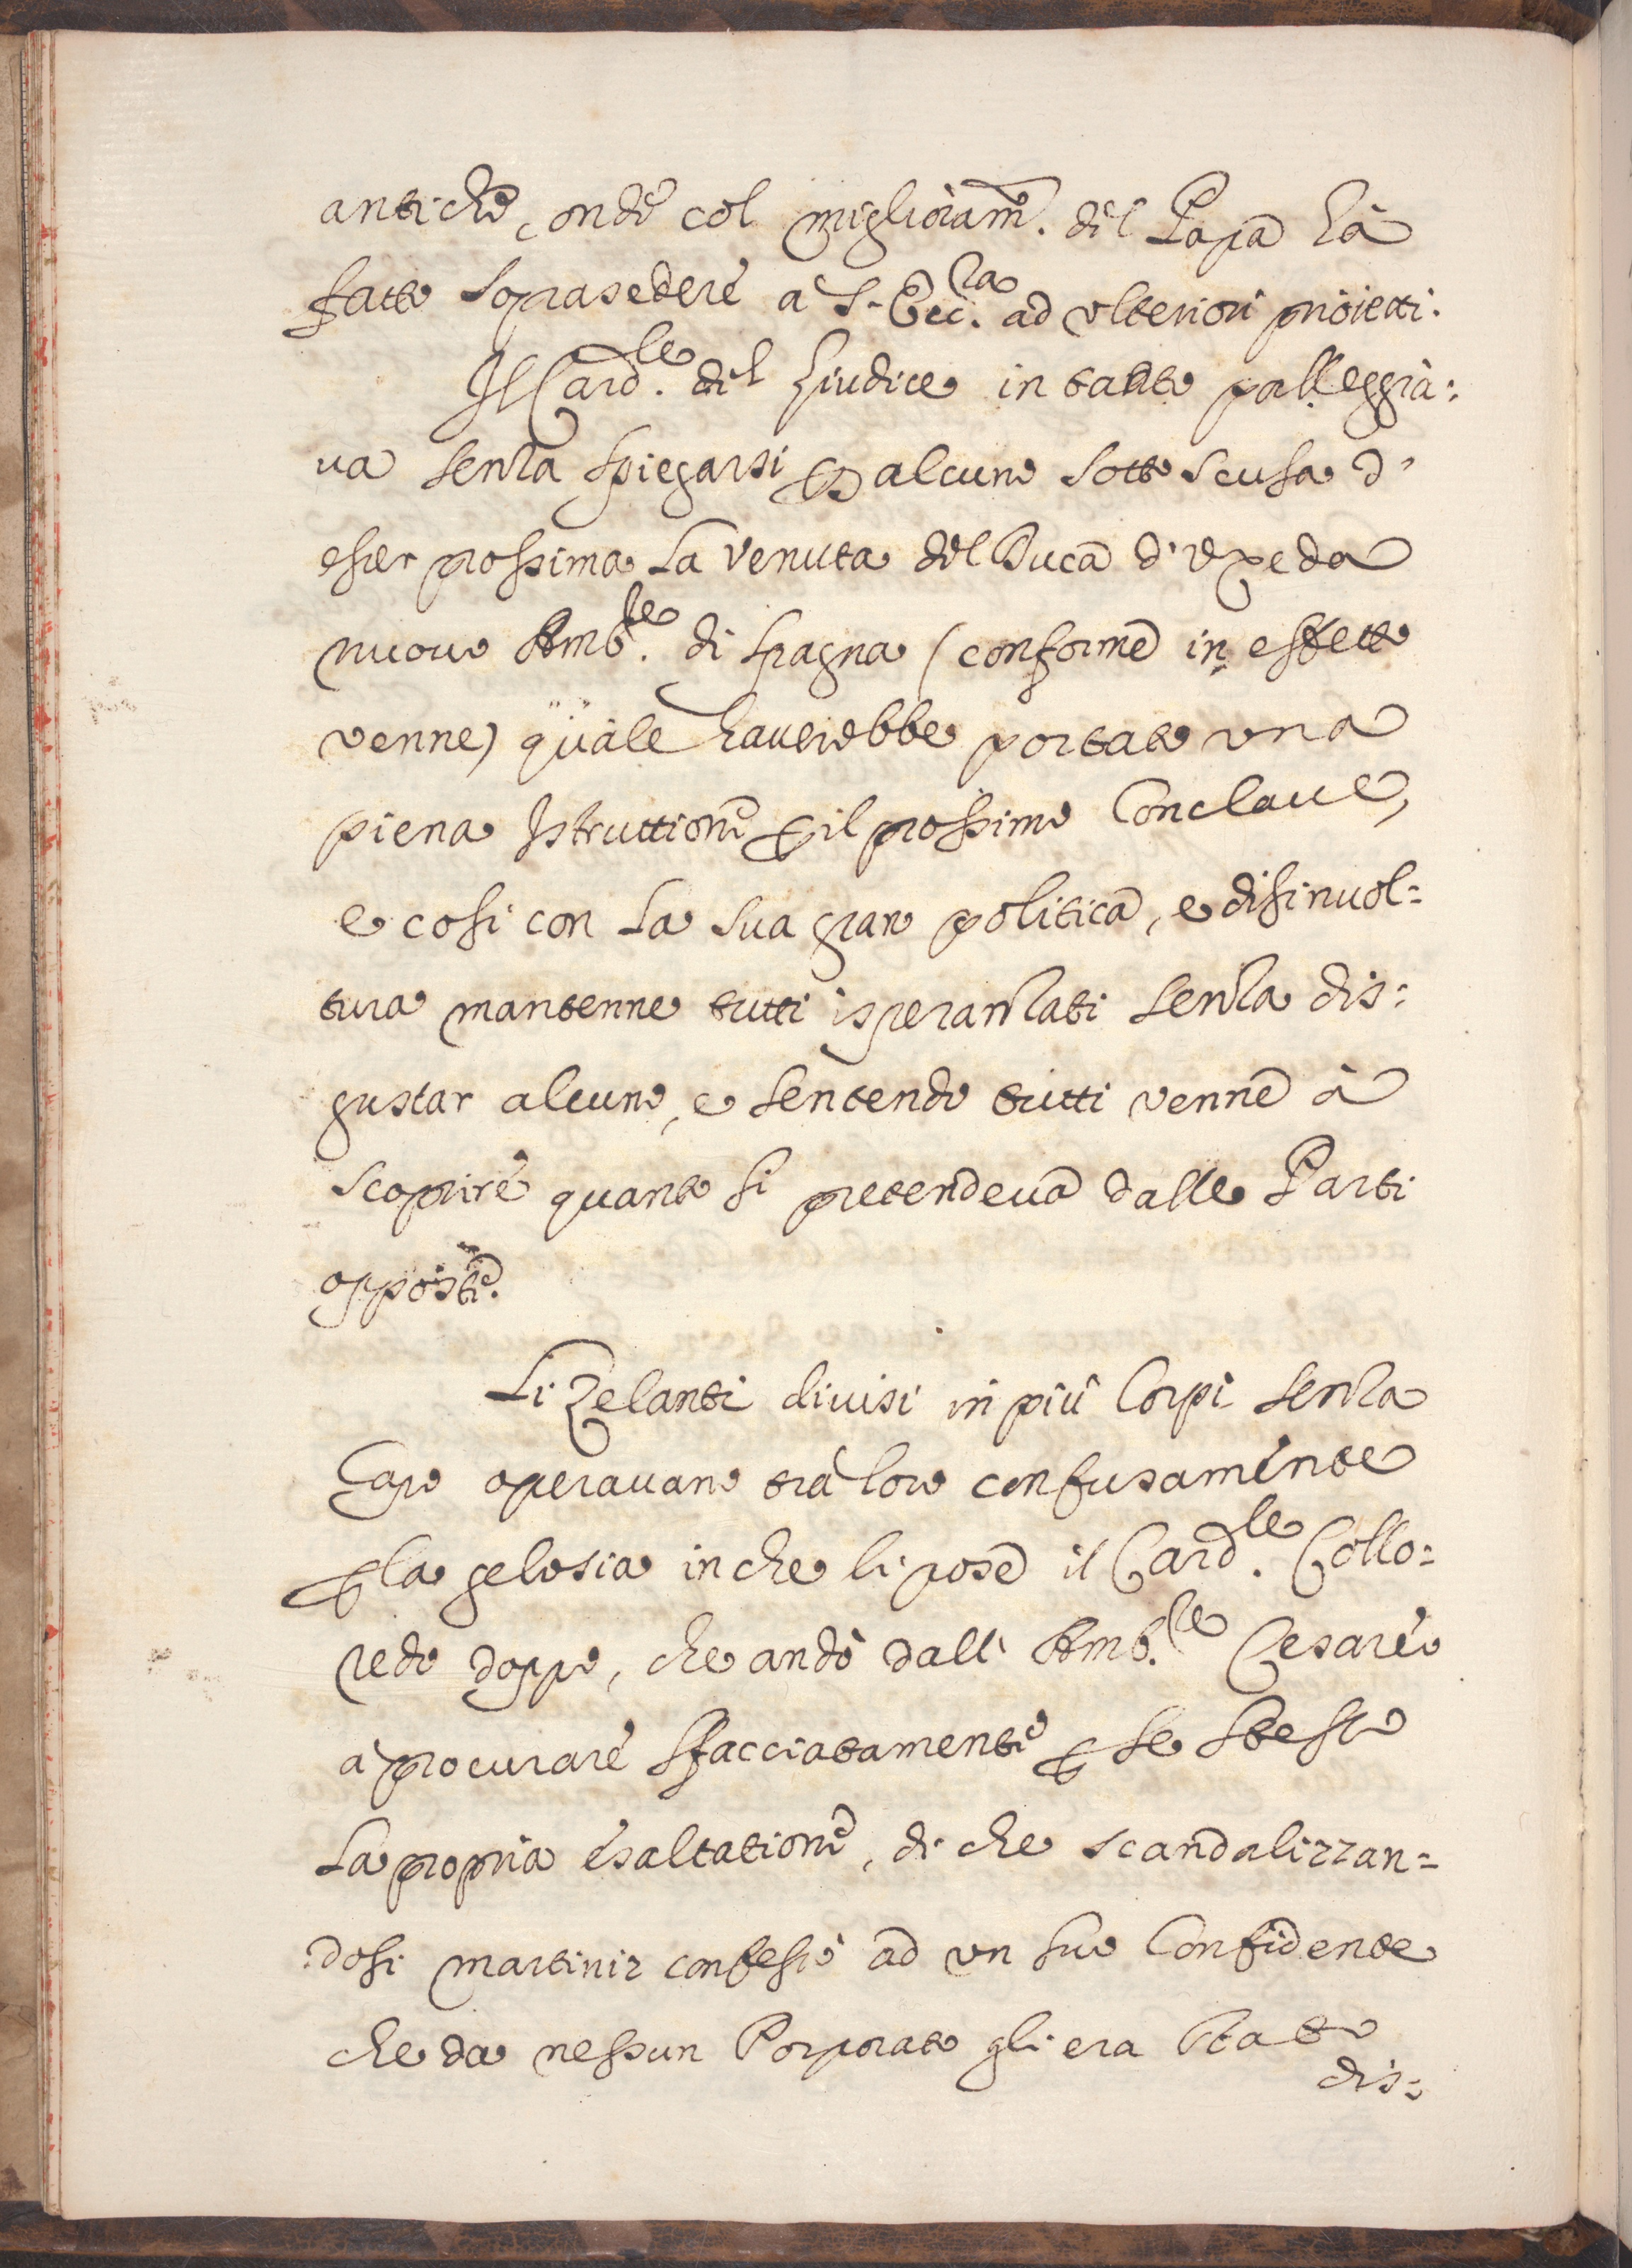 antiche, onde col miglioram.e del Papa hà
fatto soprasedere à S. Ecc.za ad ulteriori proietti.
Il Card.le del Giudice in tanto palleggia=
va senza spiegarsi per alcuno sotto scusa d'
esser prossima la venuta del Duca d'Uzeda
nuovo Amb.re di Spagna (conforme in effetto
venne) quale haverebbe portato una
piena Istruttione per il prossimo Conclave,
e così con la sua gran politica, e disinvol=
tura mantenne tutti isperanzati senza dis=
gustar alcuno, e sentendo tutti venne à
scoprire quanto si pretendeva dalle Parti
opposte.
Li Zelanti divisi in più Corpi senza
Capo operavano trà loro confusamente
per la gelosia in che li pose il Card.le Collo=
redo doppo, che andò dall' Amb.re Cesareo
à procurare sfacciatamente per se stesso
la propria esaltatione, di che scandalizzan=
dosi Martiniz confessò ad un suo Confidente
che da nessun Porporato gli era stato
dis=